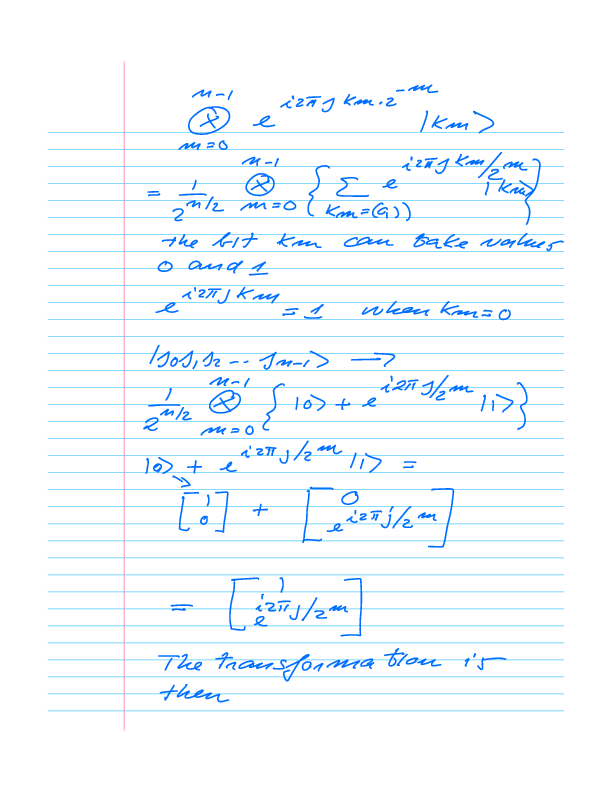 n-1
⊗ e^{i2πj km·2^{-m}} |km>
m=0
= 1/2^{n/2} n-1 ⊗ m=0 { Σ km=(0,1) e^{i2πj km/2^m} |km> }
the bit km can take values
0 and 1
e^{i2πj km} = 1 when km=0
|j0j1j2 -- jn-1> →
1/2^{n/2} n-1 ⊗ m=0 { |0> + e^{i2πj/2^m} |1> }
|0> + e^{i2πj/2^m} |1> =
[1 0] + [0 e^{i2πj/2^m}]
= [1 e^{i2πj/2^m}]
The transformation is
then